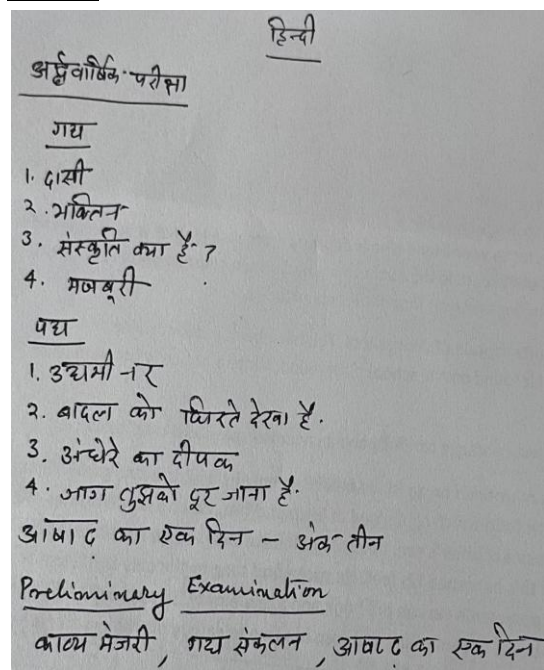 हिन्दी
अर्द्धवार्षिक परीक्षा
गद्य
1. दासी
2. भक्तिन
3. संस्कृति क्या है ?
4. मजबूरी
पद्य
1. उद्यमी नर
2. बादल को घिरते देखा है.
3. अंधेरे का दीपक
4. जाग तुझको दूर जाना है.
आषाढ़ का एक दिन – अंक तीन
Preliminary Examination
काव्य मंजरी, गद्य संकलन, आषाढ का एक दिन